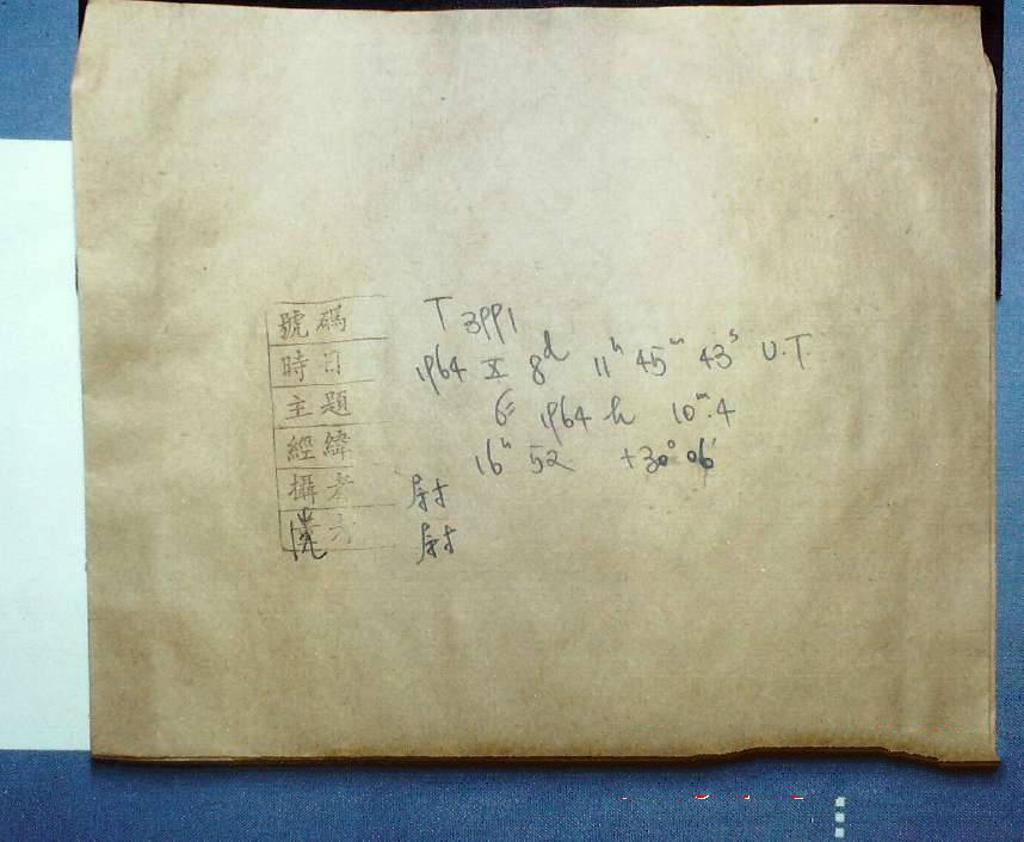 號碼 T 3991
時日 1964 X 8d 11h 45m 43s U.T.
主題 1964 h 10m.4
經緯 16h 52 +30° 06'
攝者 尉
洗 尉